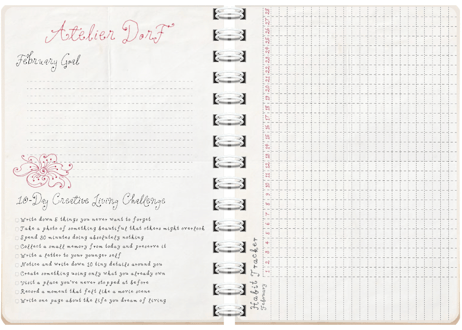 Atelier DorF
February Goal
10-Day Creative Living Challenge
Write down 5 things you never want to forget
Take a photo of something beautiful that others might overlook
Spend 30 minutes doing absolutely nothing
Collect a small memory from today and preserve it
Write a letter to your younger self
Notice and write down 10 tiny details around you
Create something using only what you already own
Visit a place you've never stopped at before
Record a moment that felt like a movie scene
Write one page about the life you dream of living
Habit Tracker
February
1 2 3 4 5 6 7 8 9 10 11 12 13 14 15 16 17 18 19 20 21 22 23 24 25 26 27 28